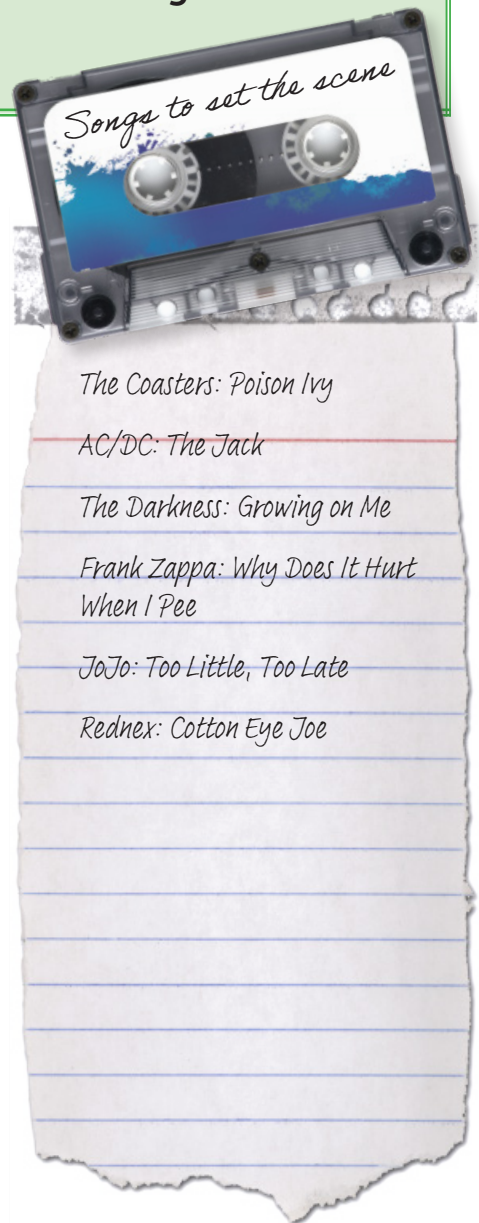 Songs to set the scene
The Coasters: Poison Ivy
AC/DC: The Jack
The Darkness: Growing on Me
Frank Zappa: Why Does It Hurt
When I Pee
JoJo: Too Little, Too Late
Rednex: Cotton Eye Joe